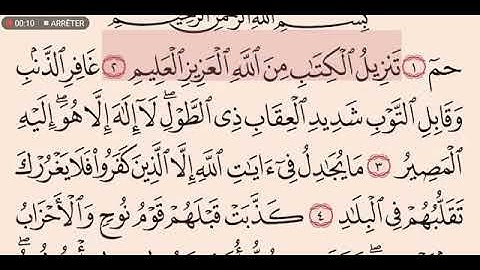 00:10 ■ ARRÊTER
بِسْمِ ٱللَّهِ ٱلرَّحْمَٰنِ ٱلرَّحِيمِ
حمٓ ١ تَنزِيلُ ٱلْكِتَٰبِ مِنَ ٱللَّهِ ٱلْعَزِيزِ ٱلْعَلِيمِ ٢ غَافِرِ ٱلذَّنۢبِ
وَقَابِلِ ٱلتَّوْبِ شَدِيدِ ٱلْعِقَابِ ذِى ٱلطَّوْلِ ۖ لَآ إِلَٰهَ إِلَّا هُوَ ۖ إِلَيْهِ
ٱلْمَصِيرُ ٣ مَا يُجَٰدِلُ فِىٓ ءَايَٰتِ ٱللَّهِ إِلَّا ٱلَّذِينَ كَفَرُوا۟ فَلَا يَغْرُرْكَ
تَقَلُّبُهُمْ فِى ٱلْبِلَٰدِ ٤ كَذَّبَتْ قَبْلَهُمْ قَوْمُ نُوحٍ وَٱلْأَحْزَابُ